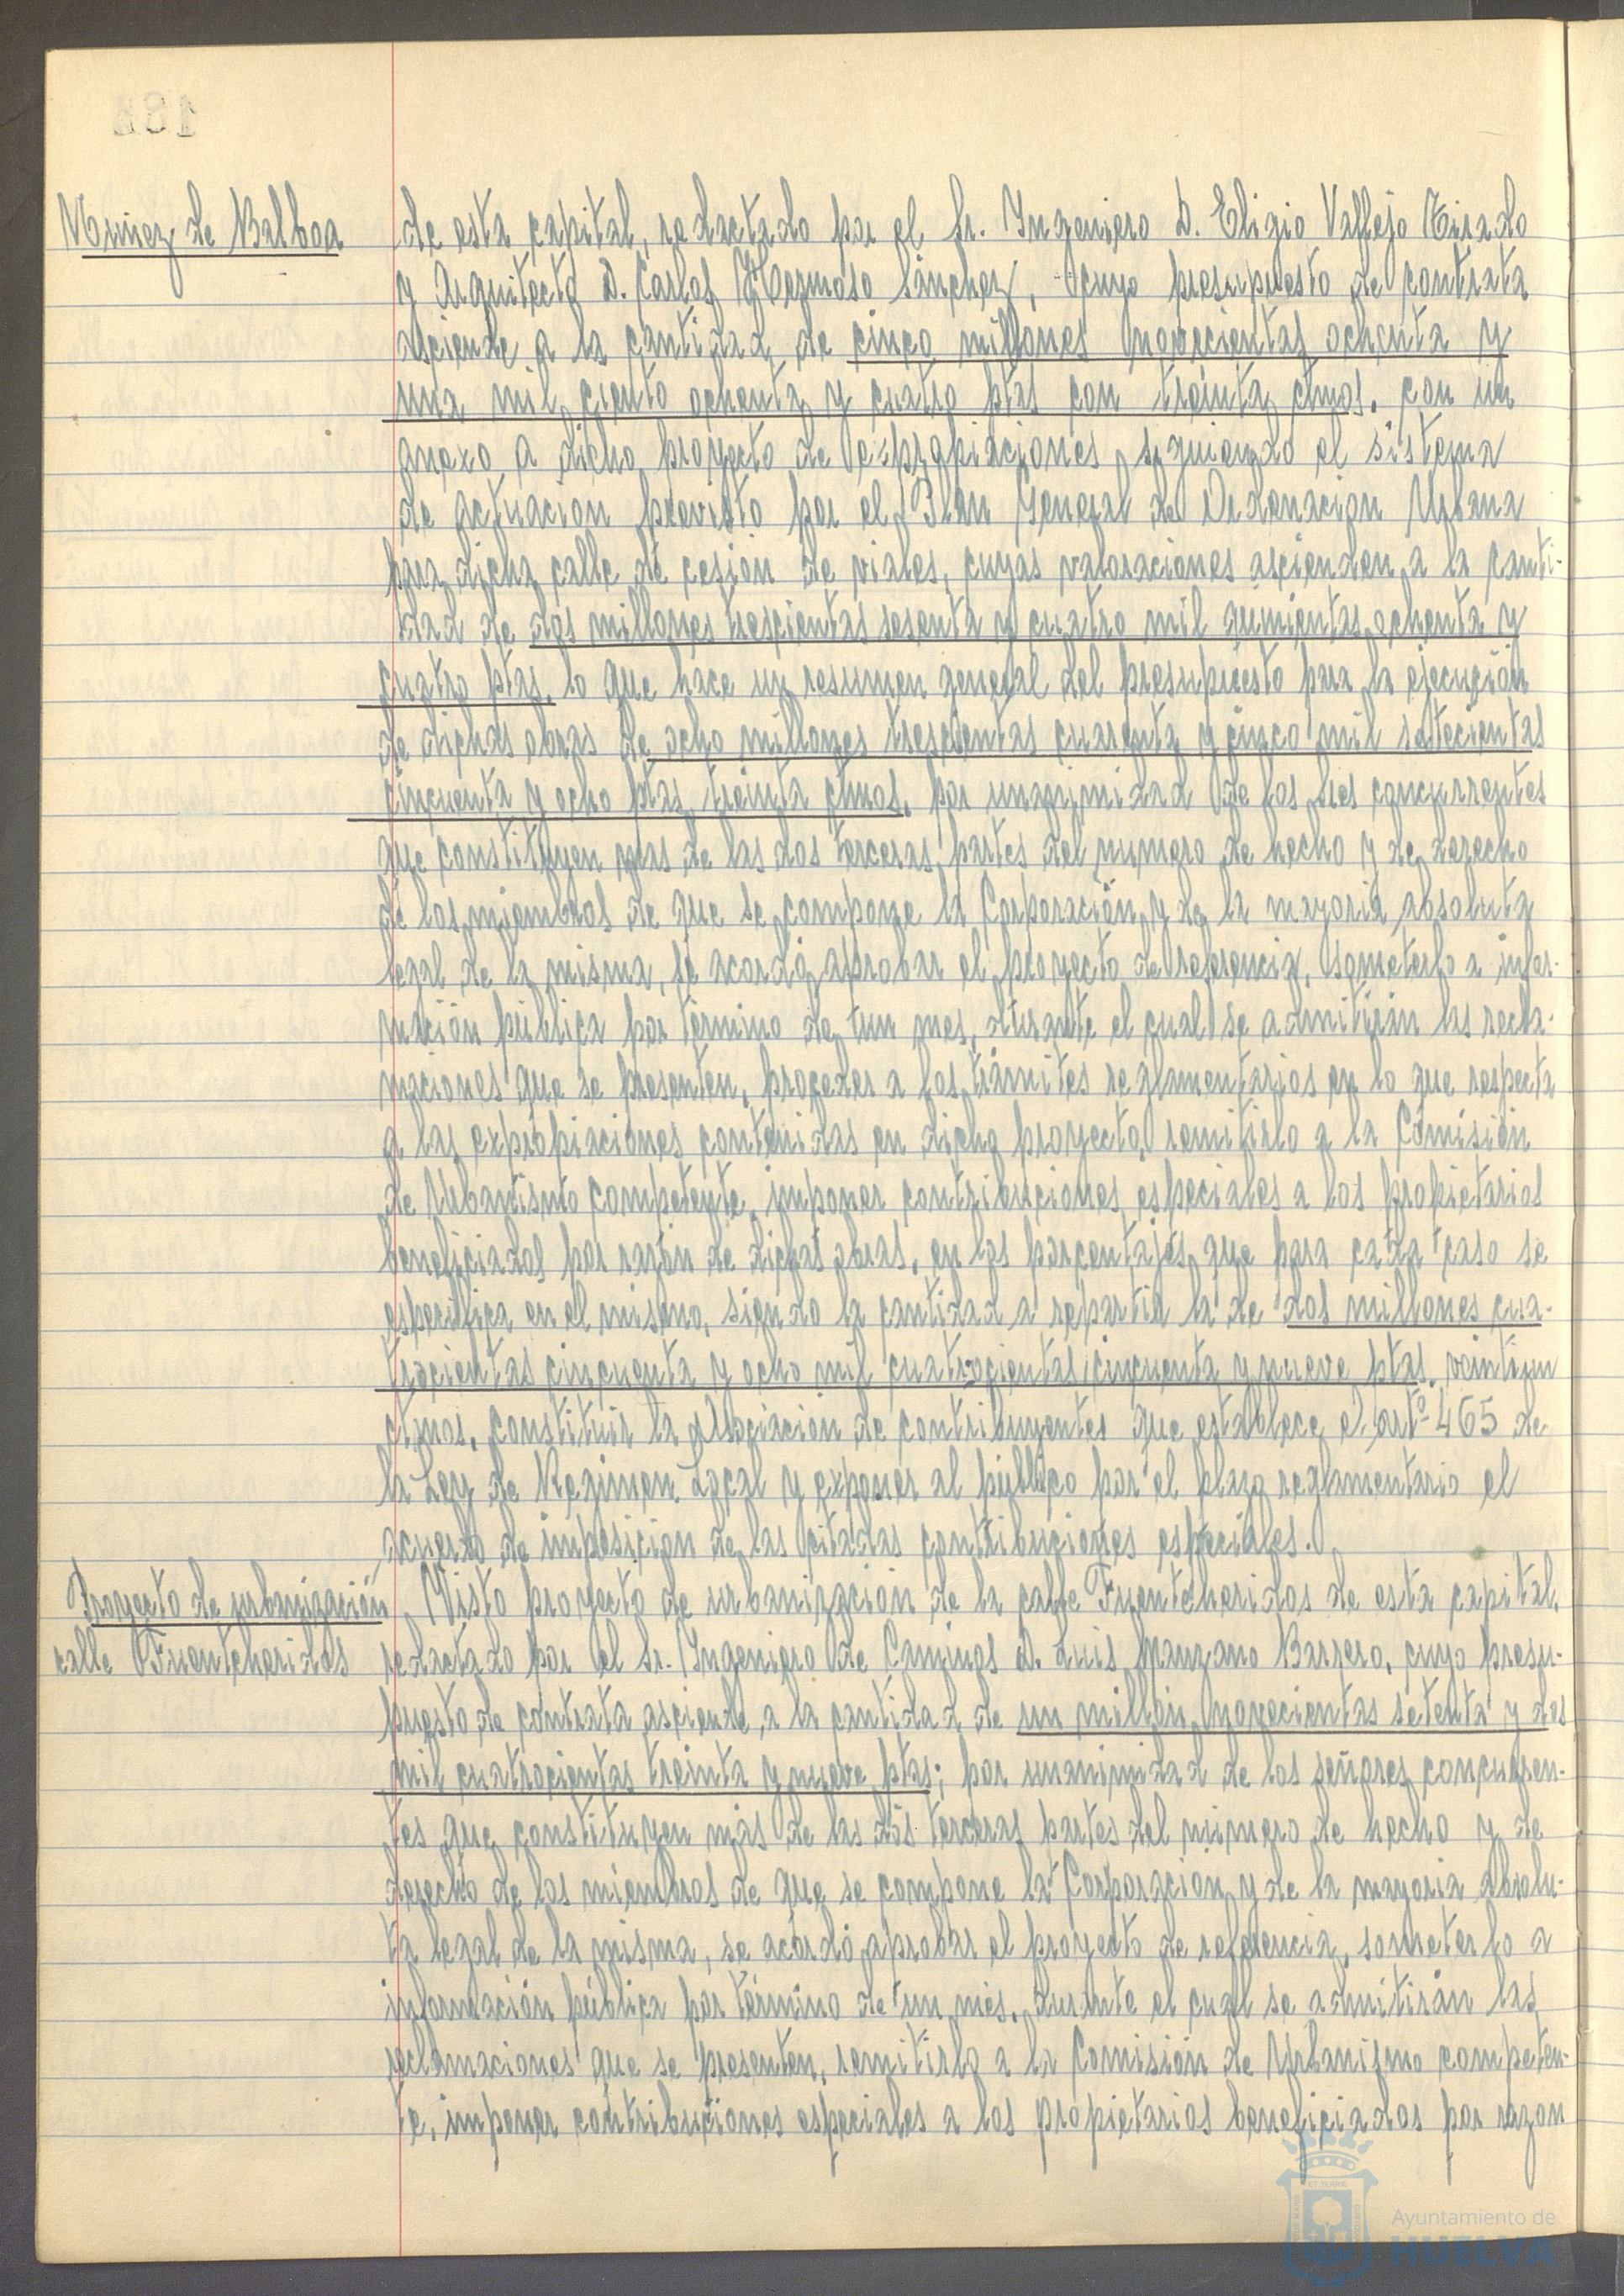 Nuñez de Balboa
de esta capital, redactado por el Sr. Ingeniero D. Eligio Vallejo Tirado
y Arquitecto D. Carlos Hermoso Sánchez, cuyo presupuesto de contrata
asciende a la cantidad de cinco millones novecientas ochenta y
una mil ciento ochenta y cuatro ptas con treinta ctmos. con un
anexo a dicho proyecto de expropiaciones siguiendo el sistema
de actuacion previsto por el Plan General de Ordenacion Urbana
para dicha calle de cesión de viales, cuyas valoraciones ascienden a la canti-
dad de dos millones trescientas sesenta y cuatro mil quinientas ochenta y
cuatro ptas, lo que hace un resumen general del presupuesto para la ejecución
de dichas obras de ocho millones trescientas cuarenta y cinco mil setecientas
cincuenta y ocho ptas treinta ctmos, por unanimidad de los Sres concurrentes
que constituyen mas de las dos terceras partes del numero de hecho y de derecho
de los miembros de que se compone la Corporación y de la mayoria absoluta
legal de la misma, se acordó aprobar el proyecto de referencia, someterlo a infor-
mación pública por termino de un mes, durante el cual se admitirán las recla-
maciones que se presenten, proceder a los trámites reglamentarios en lo que respecta
a las expropiaciones contenidas en dicho proyecto, remitirlo a la Comisión
de Urbanismo competente, imponer contribuciones especiales a los propietarios
beneficiados por razón de dichas obras, en los porcentajes que para cada caso se
especifica en el mismo, siendo la cantidad a repartir la de dos millones cua-
trocientas cincuenta y ocho mil cuatrocientas cincuenta y nueve ptas. veintiun
ctmos, constituir la Asociacion de contribuyentes que establece el artº 465 de
la Ley de Regimen Local y exponer al público por el plazo reglamentario el
acuerdo de imposicion de las citadas contribuciones especiales.
Proyecto de urbanización
calle Fuenteheridos
Visto proyecto de urbanización de la calle Fuenteheridos de esta capital,
redactado por el Sr. Ingeniero de Caminos D. Luis Manzano Barrero, cuyo presu-
puesto de contrata asciende a la cantidad de un millón novecientas setenta y dos
mil cuatrocientas treinta y nueve ptas; por unanimidad de los señores concurren-
tes que constituyen más de las dos terceras partes del número de hecho y de
derecho de los miembros de que se compone la Corporacion y de la mayoria absolu-
ta legal de la misma, se acordó aprobar el proyecto de referencia, someterlo a
información pública por término de un mes, durante el cual se admitirán las
reclamaciones que se presenten, remitirlo a la Comisión de Urbanismo competen-
te, imponer contribuciones especiales a los propietarios beneficiados por razon
Ayuntamiento de
HUELVA